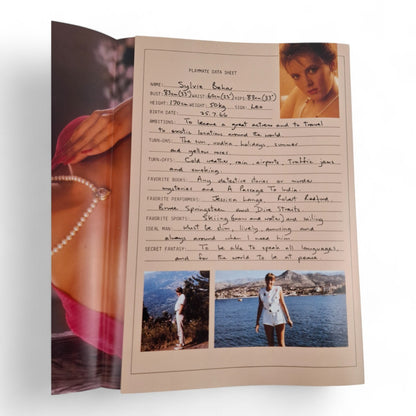 PLAYMATE DATA SHEET
NAME: Sylvie Behar
BUST: 83cm(33") WAIST: 60cm(23") HIPS: 83cm(33")
HEIGHT: 170cm WEIGHT: 50kg SIGN: Leo
BIRTH DATE: 25.7.66
AMBITIONS: To become a great actress and to travel
to exotic locations around the world.
TURN-ONS: The sun, vodka, holidays, summer
and yellow roses.
TURN-OFFS: Cold weather, rain, airports, traffic jams
and smoking.
FAVORITE BOOKS: Any detective stories or murder
mysteries and A Passage To India.
FAVORITE PERFORMERS: Jessica Lange, Robert Redford,
Bruce Springsteen and Dire Straits.
FAVORITE SPORTS: Skiing (snow and water) and sailing.
IDEAL MAN: Must be slim, lively, amusing and
always around when I need him.
SECRET FANTASY: To be able to speak all languages,
and for the world to be at peace.